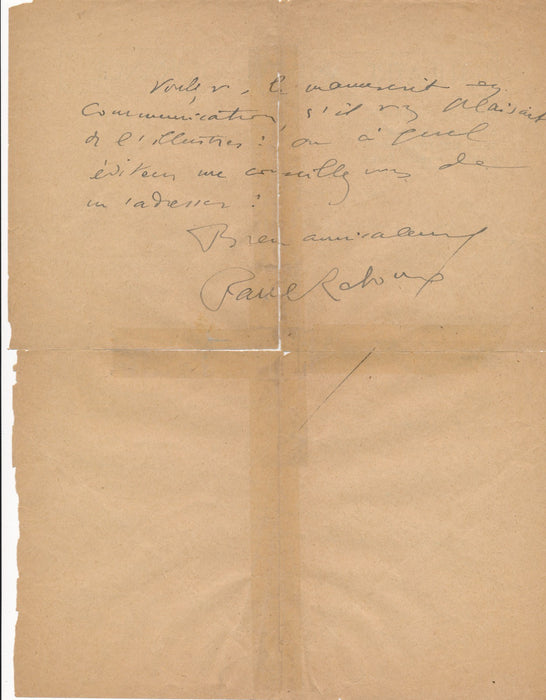 Voulez v. le manuscrit en
communication, s'il v. plaisait
de l'illustrer ? ou à quel
éditeur me conseillez vous de
m'adresser ?
Bien amicalement
Paul Reboux